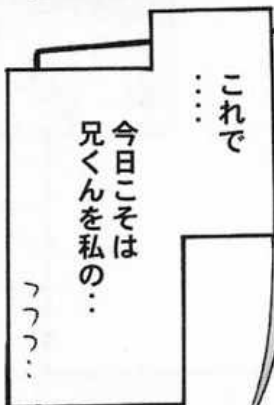 これで
‥‥
今日こそは
兄くんを私の‥
フフフ‥